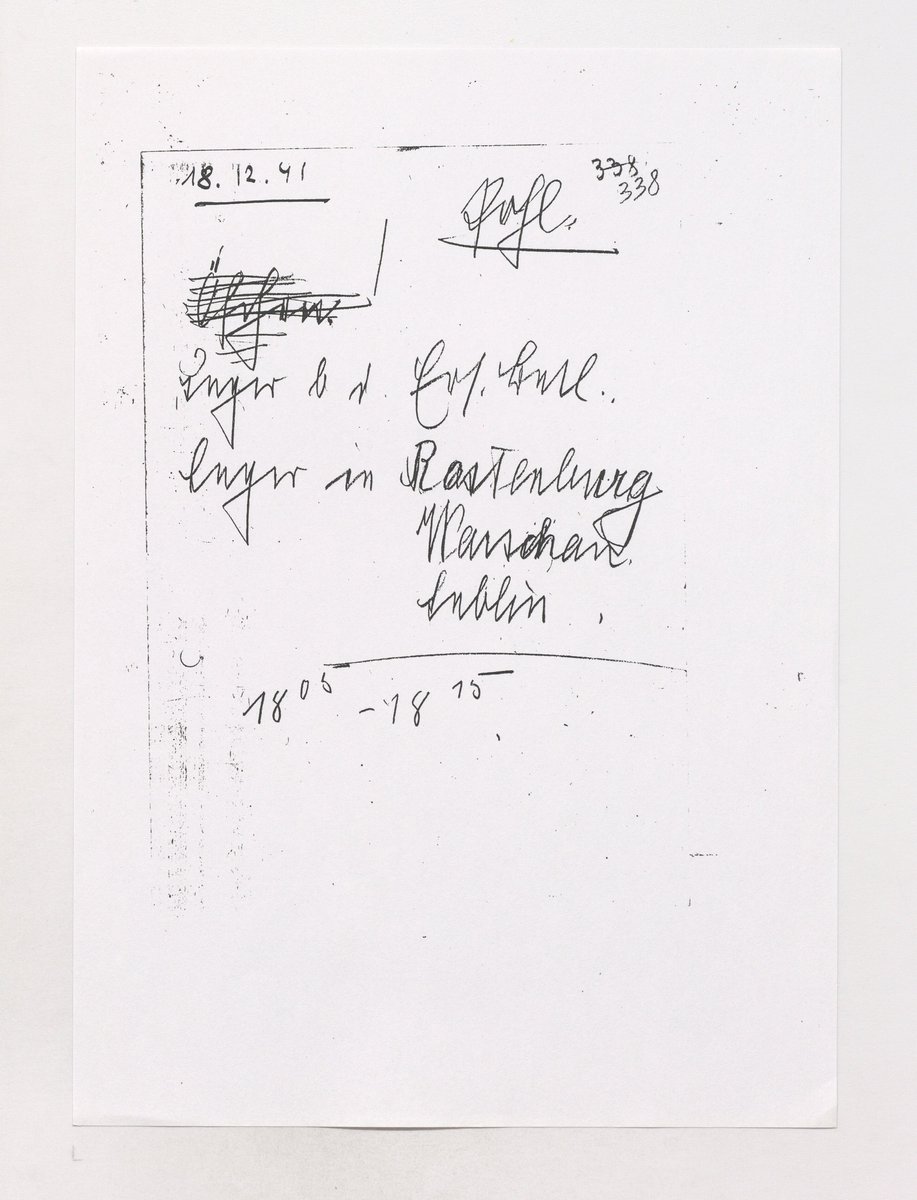 18. 12. 41
338
338
Pohl.
Lager b d. Ers. Batl.
Lager in Rastenburg
Warschau.
Lublin
18 05 - 18 15